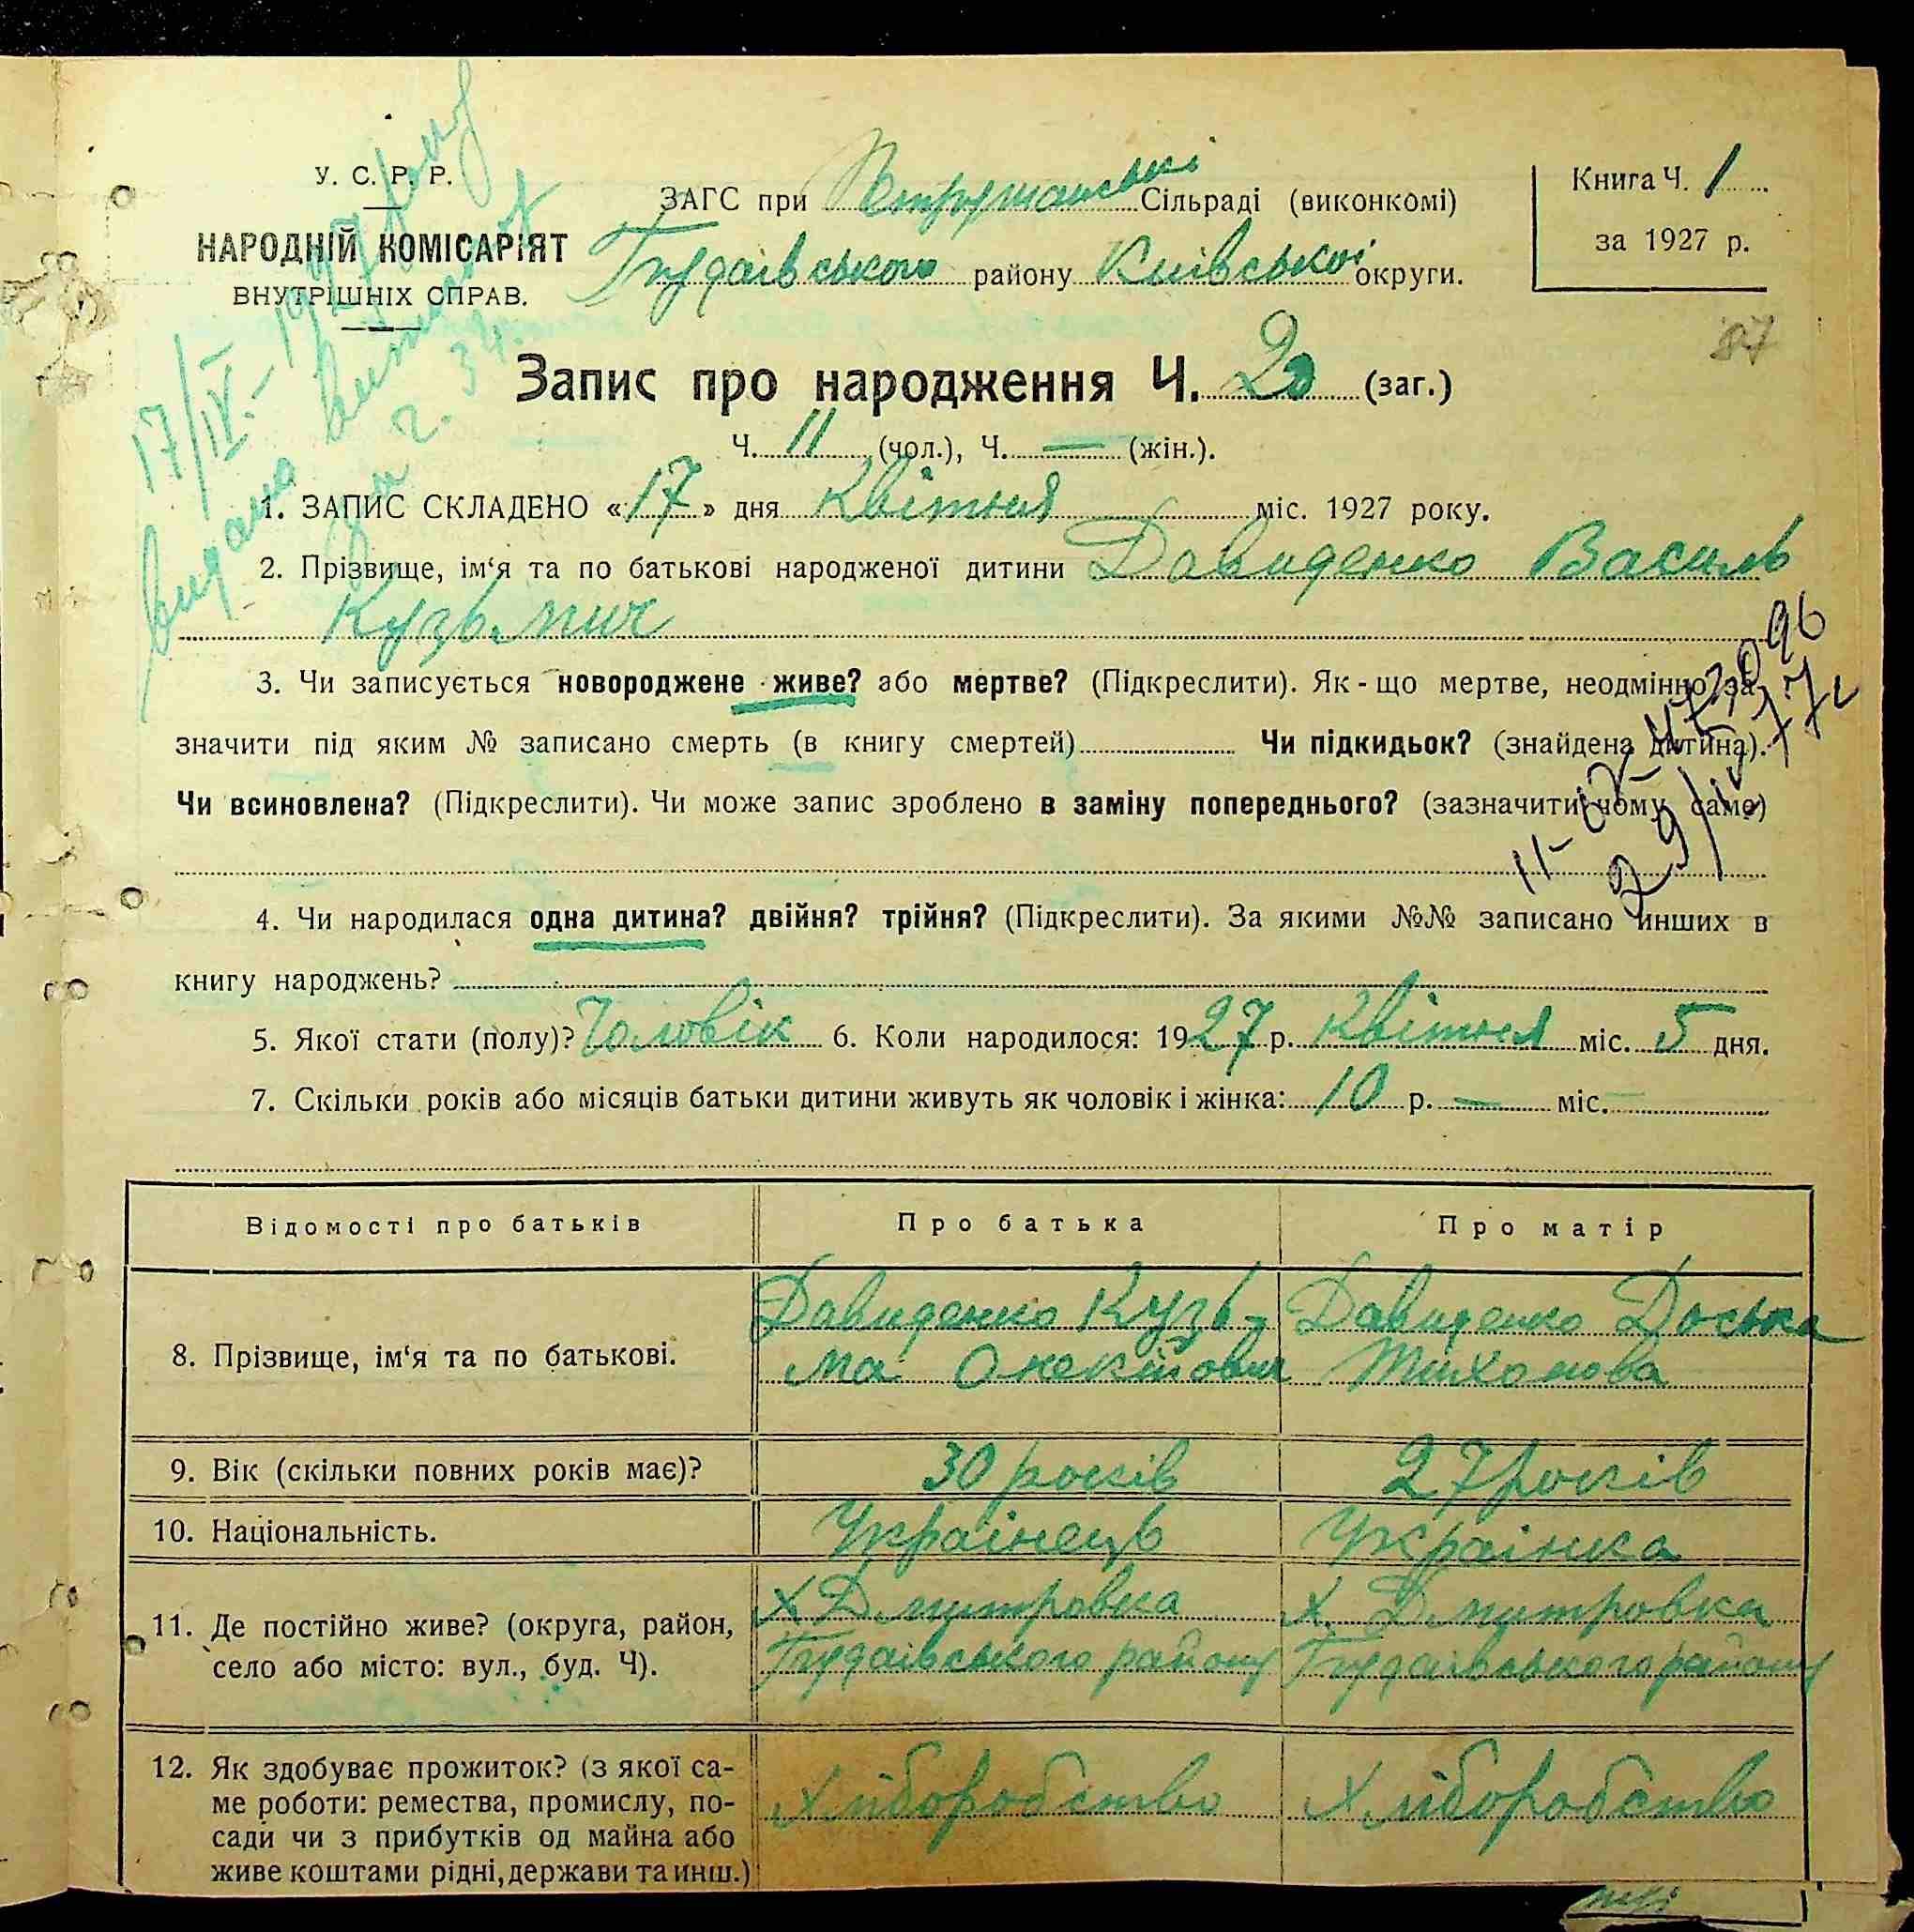 У. С. Р. Р.
НАРОДНІЙ КОМІСАРІЯТ
ВНУТРІШНІХ СПРАВ.
ЗАГС при Петрушанській Сільраді (виконкомі)
Будаівського району Киівськоі округи.
Книга Ч. 1
за 1927 р.
87
17/IV.-1927
Видано витяг
Запис про народження Ч. 20 (заг.)
Ч. 11 (чол.), Ч. — (жін.).
1. ЗАПИС СКЛАДЕНО «17» дня Квітня міс. 1927 року.
2. Прізвище, ім‘я та по батькові народженої дитини Давиденко Василь
Кузьмич
3. Чи записується новороджене живе? або мертве? (Підкреслити). Як-що мертве, неодмінно за-
значити під яким № записано смерть (в книгу смертей) Чи підкидьок? (знайдена дитина).
Чи всиновлена? (Підкреслити). Чи може запис зроблено в заміну попереднього? (зазначити чому саме)
4. Чи народилася одна дитина? двійня? трійня? (Підкреслити). За якими №№ записано инших в
книгу народжень?
5. Якої стати (полу)? Чоловік 6. Коли народилося: 1927 р. Квітня міс. 5 дня.
7. Скільки років або місяців батьки дитини живуть як чоловік і жінка: 10 р. — міс.
Відомості про батьків Про батька Про матір
8. Прізвище, ім‘я та по батькові. Давиденко Кузь- Давиденко Доська
ма Онекійович Тихонова
9. Вік (скільки повних років має)? 30 років 27 років
10. Національність. Украінець Украінка
11. Де постійно живе? (округа, район, Х Дмитровка Х. Дмитровка
село або місто: вул., буд. Ч). Будаівського району Будаівського району
12. Як здобуває прожиток? (з якої са-
ме роботи: ремества, промислу, по- Хліборобство Хліборобство
сади чи з прибутків од майна або
живе коштами рідні, держави та инш.)